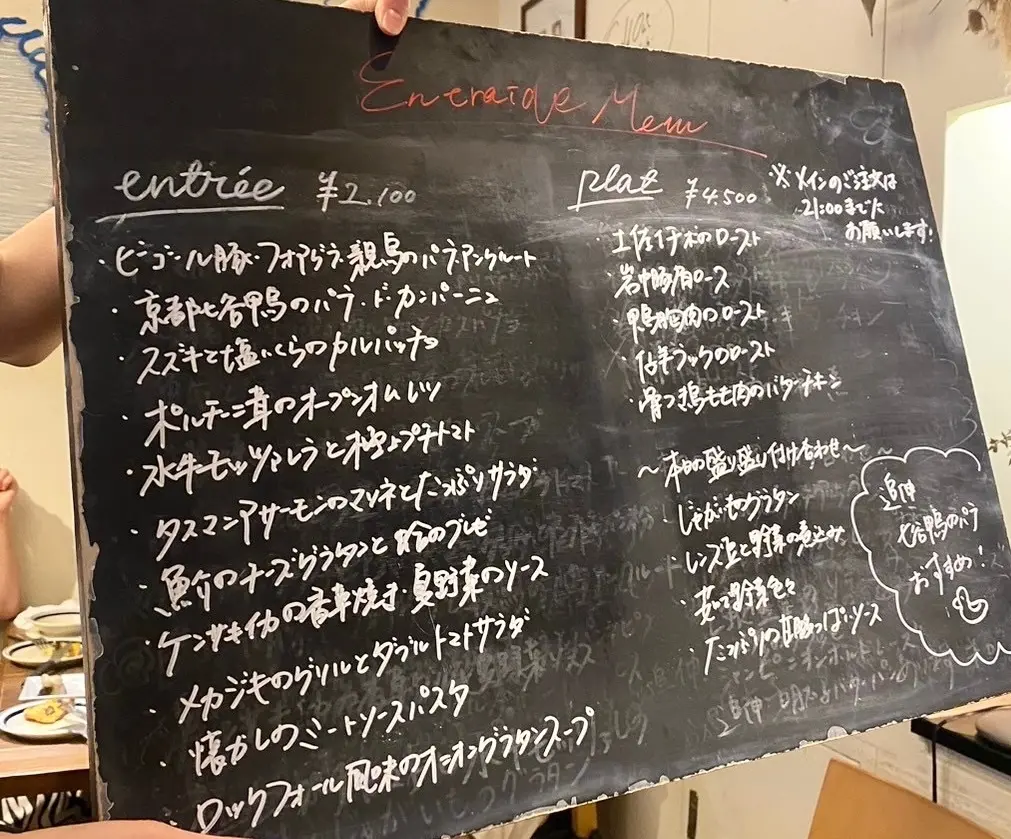 Entraide Menu
entrée ¥2.100
・ビーゴール豚・フォアグラ・親鳥のパテアンクルート
・京都七谷鴨のパテ・ド・カンパーニュ
・スズキと塩いくらのカルパッチョ
・ポルチーニ茸のオープンオムレツ
・水牛モッツァレラと極上プチトマト
・タスマニアサーモンのマリネとたっぷりサラダ
・魚介のチーズグラタンと のブレゼ
・ケンサキイカの香草焼き・夏野菜のソース
・メカジキのグリルとダブルトマトサラダ
・懐かしのミートソースパスタ
・ロックフォール風味のオニオングラタンスープ
plat ¥4.500
※メインのご注文は
21:00までに
お願いします!
・土佐 のロースト
・岩中豚肩ロース
・鴨胸肉のロースト
・仔羊ラックのロースト
・骨つき鶏もも肉のバターチキン
〜本日の盛り盛り付け合わせ〜
・じゃがいものグラタン
・レンズ豆と野菜の煮込み
・ 野菜色々
・たっぷりの甘酸っぱいソース
追伸
七谷鴨のパテ
おすすめ!